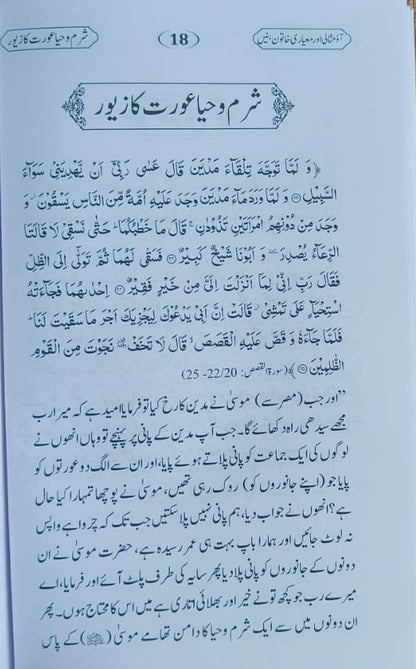 آؤ مثالی اور معیاری خاتون بنیں
18
شرم و حیا عورت کا زیور
شرم و حیا عورت کا زیور
﴿وَ لَمَّا تَوَجَّهَ تِلْقَآءَ مَدْيَنَ قَالَ عَسٰى رَبِّيْٓ اَنْ يَّهْدِيَنِيْ سَوَآءَ
السَّبِيْلِ ۞ وَ لَمَّا وَرَدَ مَآءَ مَدْيَنَ وَجَدَ عَلَيْهِ اُمَّةً مِّنَ النَّاسِ يَسْقُوْنَ ۖ وَ
وَجَدَ مِنْ دُوْنِهِمُ امْرَاَتَيْنِ تَذُوْدٰنِ ۚ قَالَ مَا خَطْبُكُمَا ۖ قَالَتَا لَا نَسْقِيْ حَتّٰى
يُصْدِرَ الرِّعَآءُ ۖ وَ اَبُوْنَا شَيْخٌ كَبِيْرٌ ۞ فَسَقٰى لَهُمَا ثُمَّ تَوَلّٰٓى اِلَى الظِّلِّ
فَقَالَ رَبِّ اِنِّيْ لِمَآ اَنْزَلْتَ اِلَيَّ مِنْ خَيْرٍ فَقِيْرٌ ۞ فَجَآءَتْهُ اِحْدٰىهُمَا
تَمْشِيْ عَلَى اسْتِحْيَآءٍ ۖ قَالَتْ اِنَّ اَبِيْ يَدْعُوْكَ لِيَجْزِيَكَ اَجْرَ مَا سَقَيْتَ لَنَا ۖ
فَلَمَّا جَآءَهٗ وَ قَصَّ عَلَيْهِ الْقَصَصَ ۙ قَالَ لَا تَخَفْ ۥ نَجَوْتَ مِنَ الْقَوْمِ
الظّٰلِمِيْنَ ۞﴾ (سورۃ القصص: 22/20- 25)
”اور جب (مصر سے) موسیٰ نے مدین کا رخ کیا تو فرمایا امید ہے کہ میرا رب
مجھے سیدھی راہ دکھائے گا۔ جب آپ مدین کے پانی پر پہنچے تو وہاں انھوں نے
لوگوں کی ایک جماعت کو پانی پلاتے ہوئے پایا، اور ان سے الگ دو عورتوں کو
پایا جو (اپنے جانوروں کو) روک رہی تھیں، موسیٰ نے پوچھا تمہارا کیا حال
ہے؟ انھوں نے جواب دیا، ہم پانی نہیں پلا سکتیں جب تک کہ چرواہے واپس
نہ لوٹ جائیں اور ہمارا باپ بہت ہی عمر رسیدہ ہے، حضرت موسیٰ نے ان
دونوں کے جانوروں کو پانی پلا دیا پھر سایہ کی طرف پلٹ آئے اور فرمایا، اے
میرے رب جو کچھ تو نے خیر اور بھلائی اتاری ہے میں اس کا محتاج ہوں۔ پھر
ان دونوں میں سے ایک شرم و حیا کا دامن تھامے موسیٰ (علیہ السلام) کے پاس